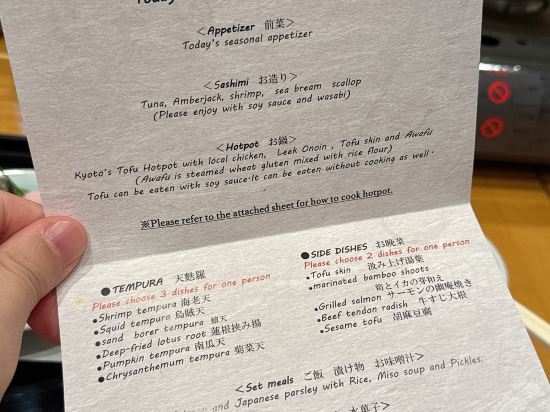 Today
<Appetizer 前菜>
Today's seasonal appetizer
<Sashimi お造り>
Tuna, Amberjack, shrimp, sea bream scallop
(Please enjoy with soy sauce and wasabi)
<Hotpot お鍋>
Kyoto's Tofu Hotpot with local chicken, Leek Onoin , Tofu skin and Awafu
(Awafu is steamed wheat gluten mixed with rice flour)
Tofu can be eaten with soy sauce·It can be eaten without cooking as well·
※Please refer to the attached sheet for how to cook hotpot.
●TEMPURA 天麩羅
Please choose 3 dishes for one person
●Shrimp tempura 海老天
●Squid tempura 烏賊天
●sand borer tempura 鱚天
●Deep-fried lotus root 蓮根挟み揚
●Pumpkin tempura 南瓜天
●Chrysanthemum tempura 菊菜天
●SIDE DISHES お晩菜
Please choose 2 dishes for one person
●Tofu skin 汲み上げ湯葉
●marinated bamboo shoots
筍とイカの芽和え
●Grilled salmon サーモンの幽庵焼き
●Beef tendon radish 牛すじ大根
●Sesame tofu 胡麻豆腐
<Set meals ご飯 漬け物 お味噌汁>
and Japanese parsley with Rice, Miso soup and Pickles.
菓子>